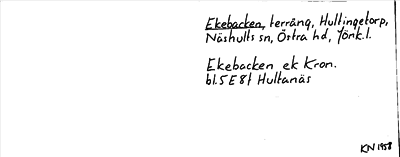 Ekebacken, terräng, Hultingetorp,
Näshults sn, Östra hd, Jönk.l.
Ekebacken ek Kron.
bl. 5 E 8 f Hultanäs
KN 1958